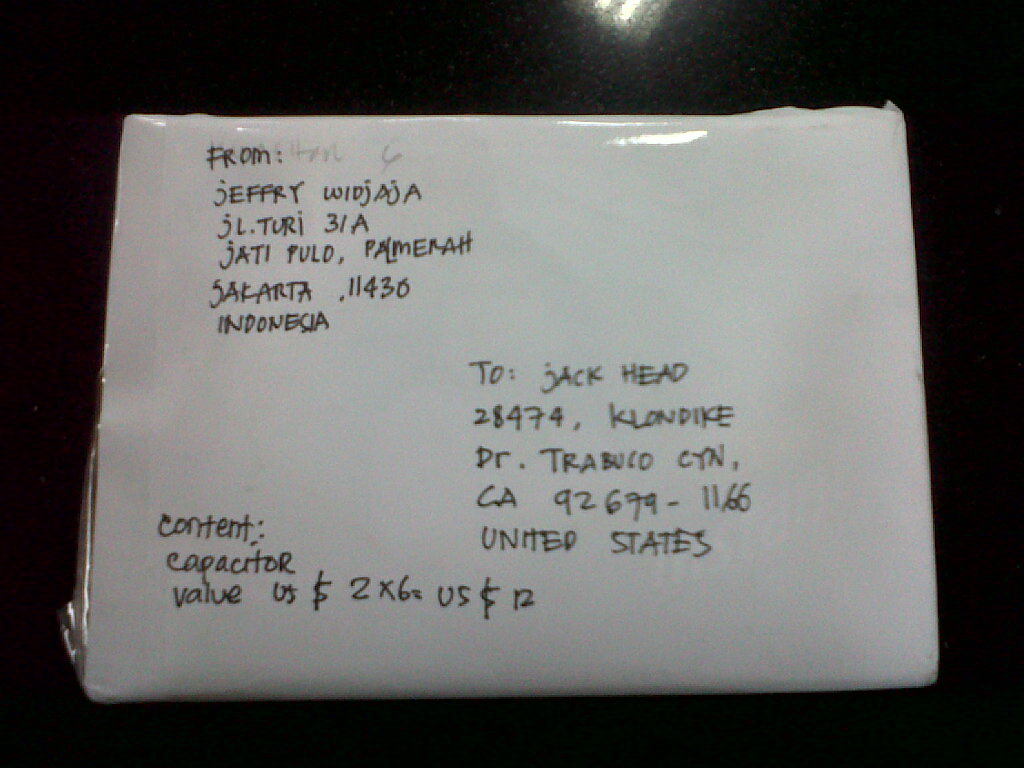 FROM:
jEFFRY WIDjAjA
jL.TURi 31A
jATI PULO, PALmERAH
jAKARTA ,11430
INDONESIA
TO: jACK HEAD
28474, KLONDIKE
Dr. TRABUCO CYN,
CA 92679-1166
UNITED STATES
content:
capacitor
value US $ 2x6= US $ 12